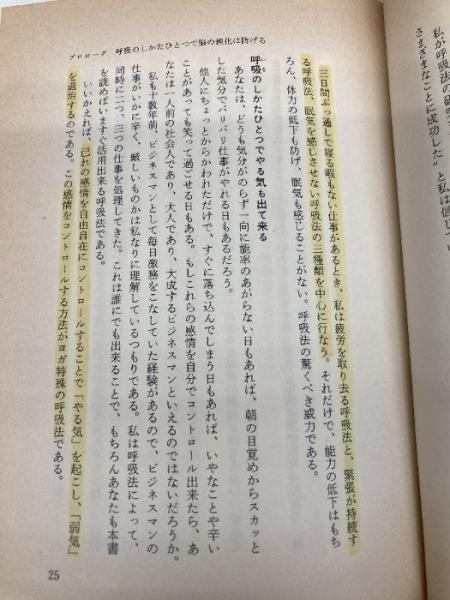 私が呼吸法の研究
さまざまなことに成功した"と私は信じて
プロローグ 呼吸のしかたひとつで脳の鈍化は防げる
三日間ぶっ通しで寝る暇もない仕事があるとき、私は疲労を取り去る呼吸法と、緊張が持続す
る呼吸法、眠気を感じさせない呼吸法の三種類を中心に行なう。それだけで、能力の低下はもち
ろん、体力の低下も防げ、眠気も感じることがない。呼吸法の驚くべき威力である。
呼吸のしかたひとつでやる気も出て来る
あなたは、どうも気分がのらず一向に能率のあがらない日もあれば、朝の目覚めからスカッと
した気分でバリバリ仕事がやれる日もあるだろう。
他人にちょっとからかわれただけで、すぐに落ち込んでしまう日もあれば、いやなことや辛い
ことがあっても笑って過ごせる日もある。もしこれらの感情を自分でコントロール出来たら、あ
なたは一人前の社会人であり、大人であり、大成するビジネスマンといえるのではないだろうか。
私も十数年前、ビジネスマンとして毎日激務をこなしていた経験があるので、ビジネスマンの
仕事がいかに辛く、厳しいものかは私なりに理解しているつもりである。私は呼吸法によって、
同時に二つ、三つの仕事を処理してきた。これは誰にでも出来ることで、もちろんあなたも本書
を読めばいますぐ活用出来る呼吸法である。
いいかえれば、己れの感情を自由自在にコントロールすることで「やる気」を起こし、「弱気」
を退治するのである。この感情をコントロールする方法がヨガ特殊の呼吸法である。
25